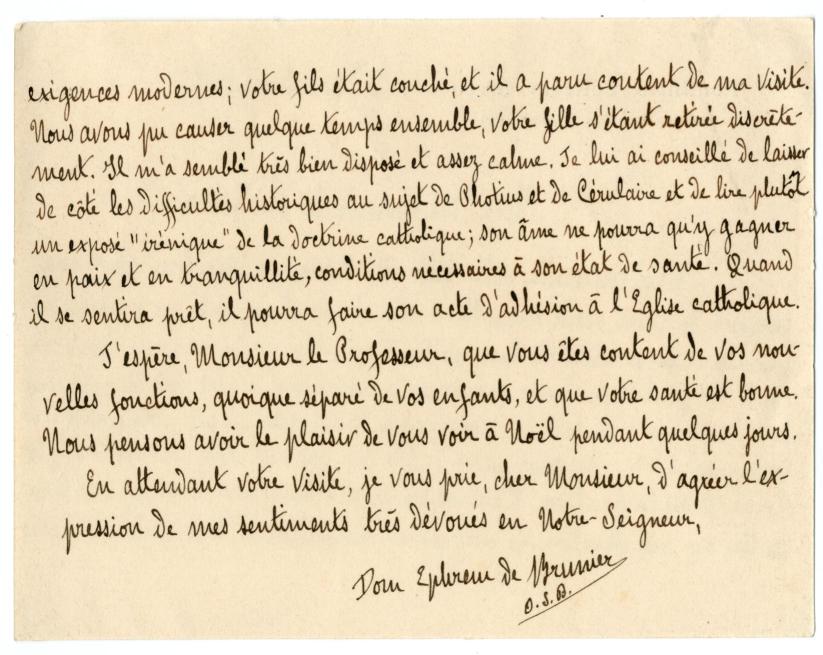 exigences modernes; votre fils était couché, et il a paru content de ma visite.
Nous avons pu causer quelque temps ensemble, votre fille s'étant retirée discrète-
ment. Il m'a semblé très bien disposé et assez calme. Je lui ai conseillé de laisser
de côté les difficultés historiques au sujet de Photius et de Cérulaire et de lire plutôt
un exposé "irénique" de la doctrine catholique; son âme ne pourra qu'y gagner
en paix et en tranquillité, conditions nécessaires à son état de santé. Quand
il se sentira prêt, il pourra faire son acte d'adhésion à l'Eglise catholique.
J'espère, Monsieur le Professeur, que vous êtes content de vos nou-
velles fonctions, quoique séparé de vos enfants, et que votre santé est bonne.
Nous pensons avoir le plaisir de vous voir à Noël pendant quelques jours.
En attendant votre visite, je vous prie, cher Monsieur, d'agréer l'ex-
pression de mes sentiments très dévoués en Notre-Seigneur,
Dom Ephrem de Brunier
O.S.B.